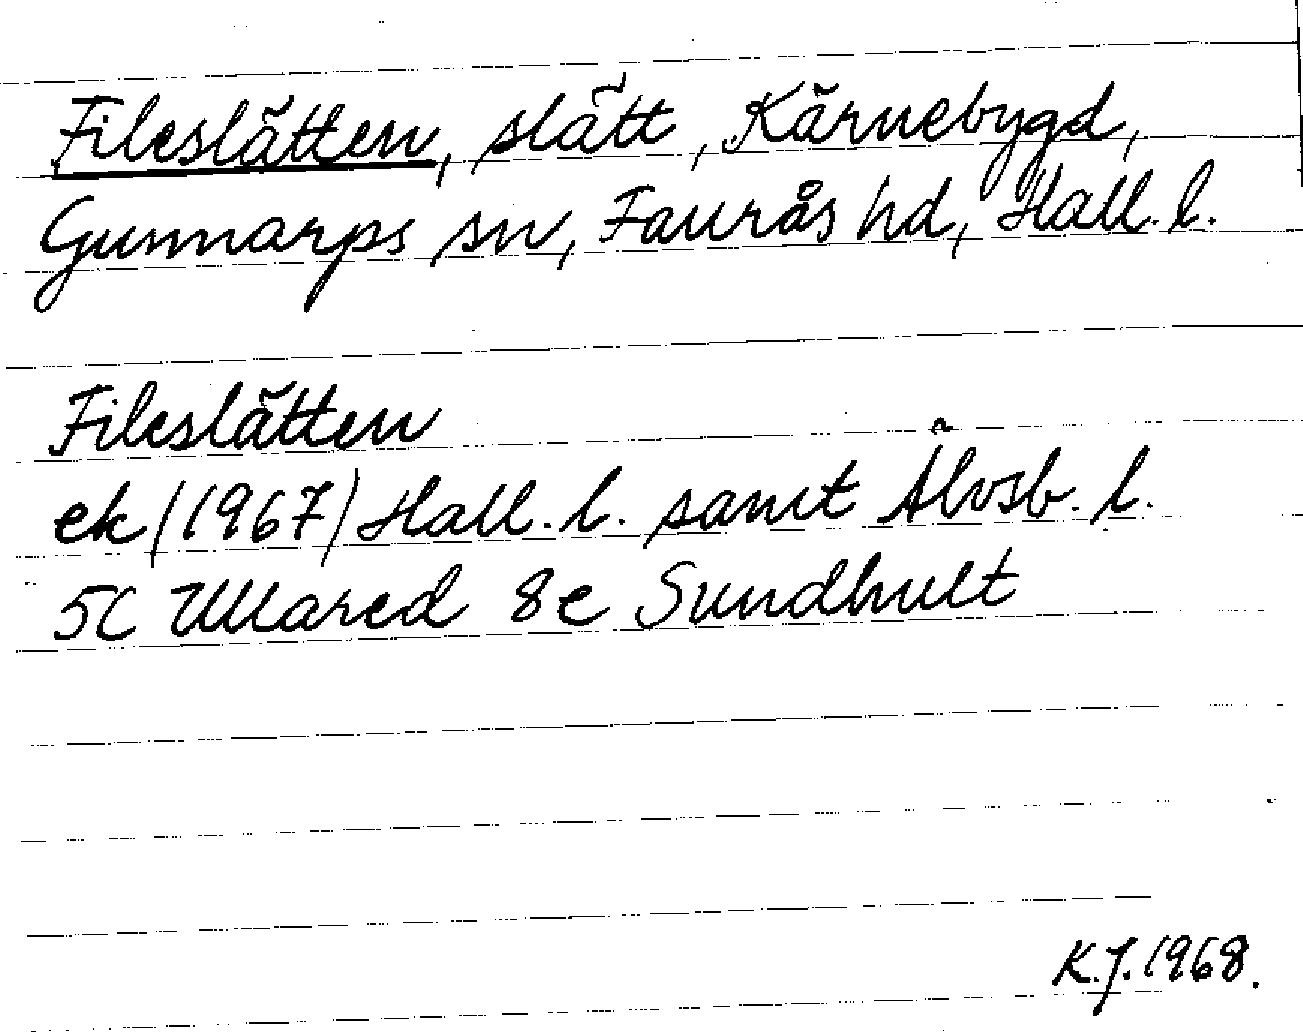 Fileslätten, slätt, Kärnebygd,
Gunnarps sn, Faurås hd, Hall. l.
Fileslätten
ek (1967) Hall. l. samt Älvsb. l.
5C Ullared 8e Sundhult
K.J. 1968.